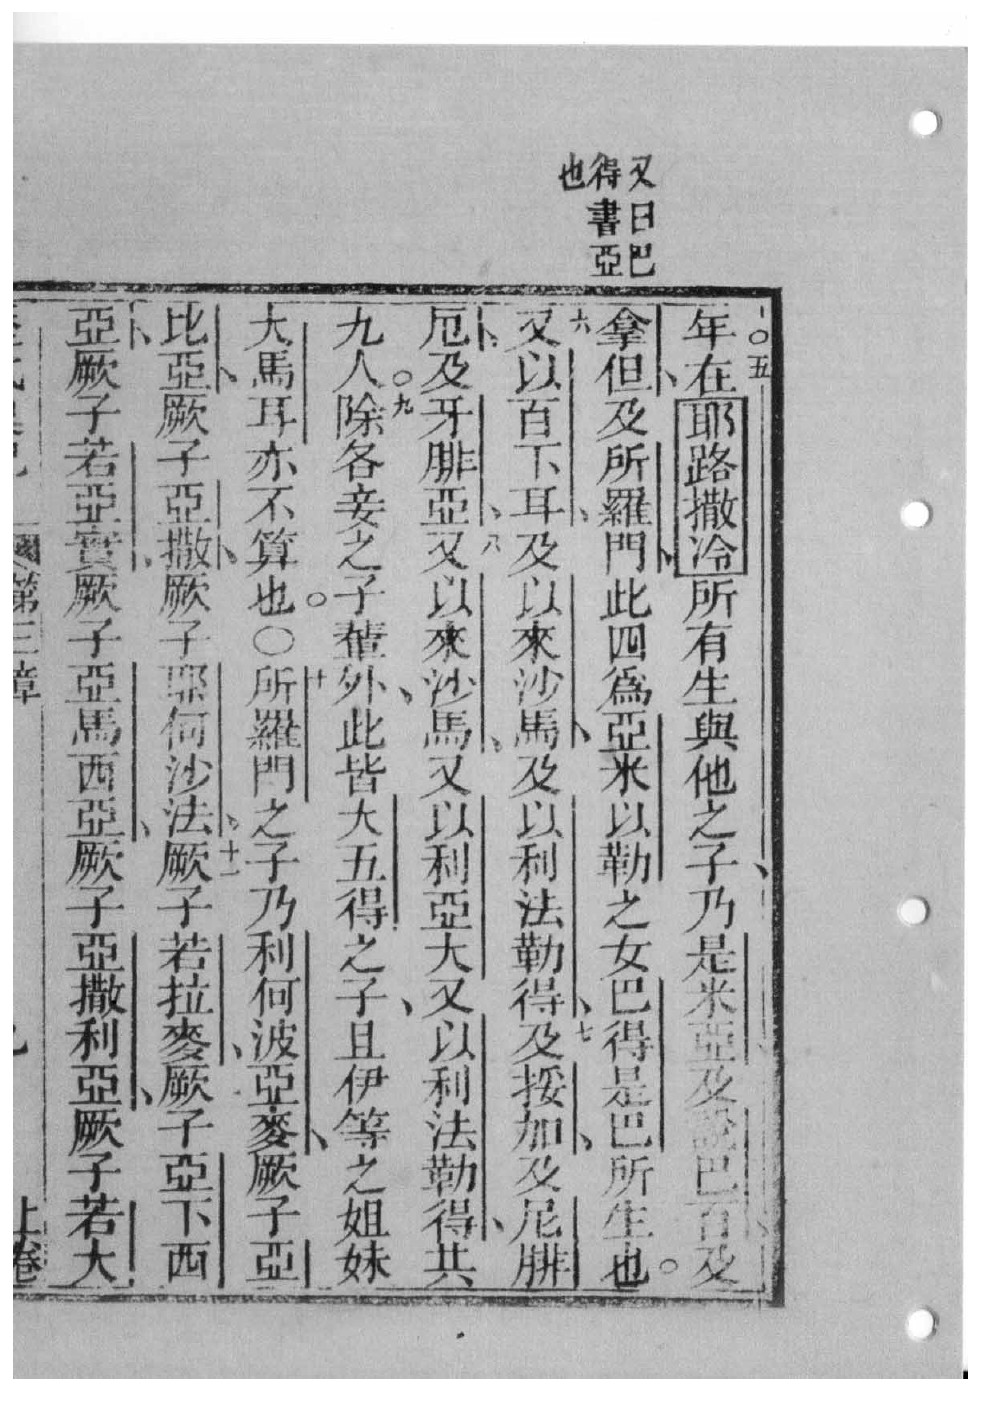 又曰巴
得書亞
也
年○五在耶路撒冷所有生與他之子、乃是米亞、及說巴百、及
拿但、及所羅門、此四爲亞米以勒之女巴得是巴所生也。
六又以百下耳、及以來沙馬、及以利法勒得、七及挼加、及尼腓
厄、及牙腓亞、八又以來沙馬、又以利亞大又以利法勒得、共
九人○九除各妾之子輩外、此皆大五得之子、且伊等之姐妹
大馬耳亦不算也。○十所羅門之子乃利何波亞麥、厥子亞
比亞、厥子亞撒、厥子耶何沙法、十一厥子若拉麥、厥子亞下西
亞、厥子若亞實、厥子亞馬西亞、厥子亞撒利亞、厥子若大
第三章
上卷